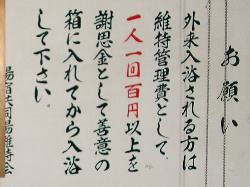 お願い
外来入浴される方は
維持管理費として、
一人一回百円以上を
謝恩金として善意の
箱に入れてから入浴
して下さい。
湯宿共同湯維持会